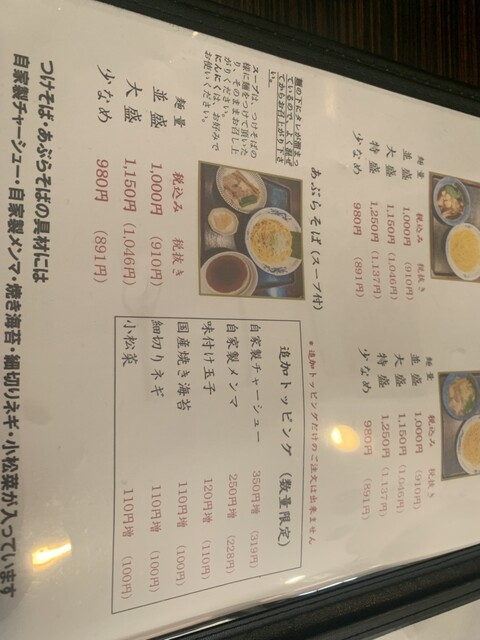 麺量 税込み 税抜き
並盛 1,000円 (910円)
大盛 1,150円 (1,046円)
特盛 1,250円 (1,137円)
少なめ 980円 (891円)
麺量 税込み 税抜き
並盛 1,000円 (910円)
大盛 1,150円 (1,046円)
特盛 1,250円 (1,137円)
少なめ 980円 (891円)
あぶらそば (スープ付)
麺の下にタレが溜まっ
ているので、よく混ぜ
てからお召上がり下さい。
スープは、つけそばの
様に麺をつけて頂いた
り、そのままお召し上
がりください。
にんにくは、お好みで
お使いください。
麺量 税込み 税抜き
並盛 1,000円 (910円)
大盛 1,150円 (1,046円)
少なめ 980円 (891円)
*追加トッピングだけのご注文は出来ません
追加トッピング (数量限定)
自家製チャーシュー 350円増 (319円)
自家製メンマ 250円増 (228円)
味付け玉子 120円増 (110円)
国産焼き海苔 110円増 (100円)
細切りネギ 110円増 (100円)
小松菜 110円増 (100円)
つけそば・あぶらそばの具材には
自家製チャーシュー・自家製メンマ・焼き海苔・細切りネギ・小松菜が入っています